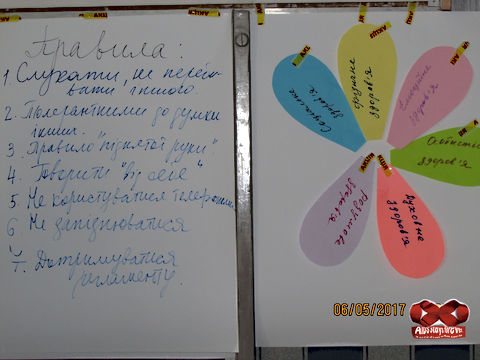 Правила:
1. Слухати, не переби-
вати іншого.
2. Толерантними до думки
інших.
3. Правило "піднятої руки"
4. Говорити "від себе"
5. Не користуватися телефоном
6 Не запізнюватися
7. Дотримуватися
регламенту.
Соціальне
здоров'я
Фізичне
здоров'я
Емоційне
здоров'я
Особисте
здоров'я
Духовне
здоров'я
Розумове
здоров'я
06/05/2017